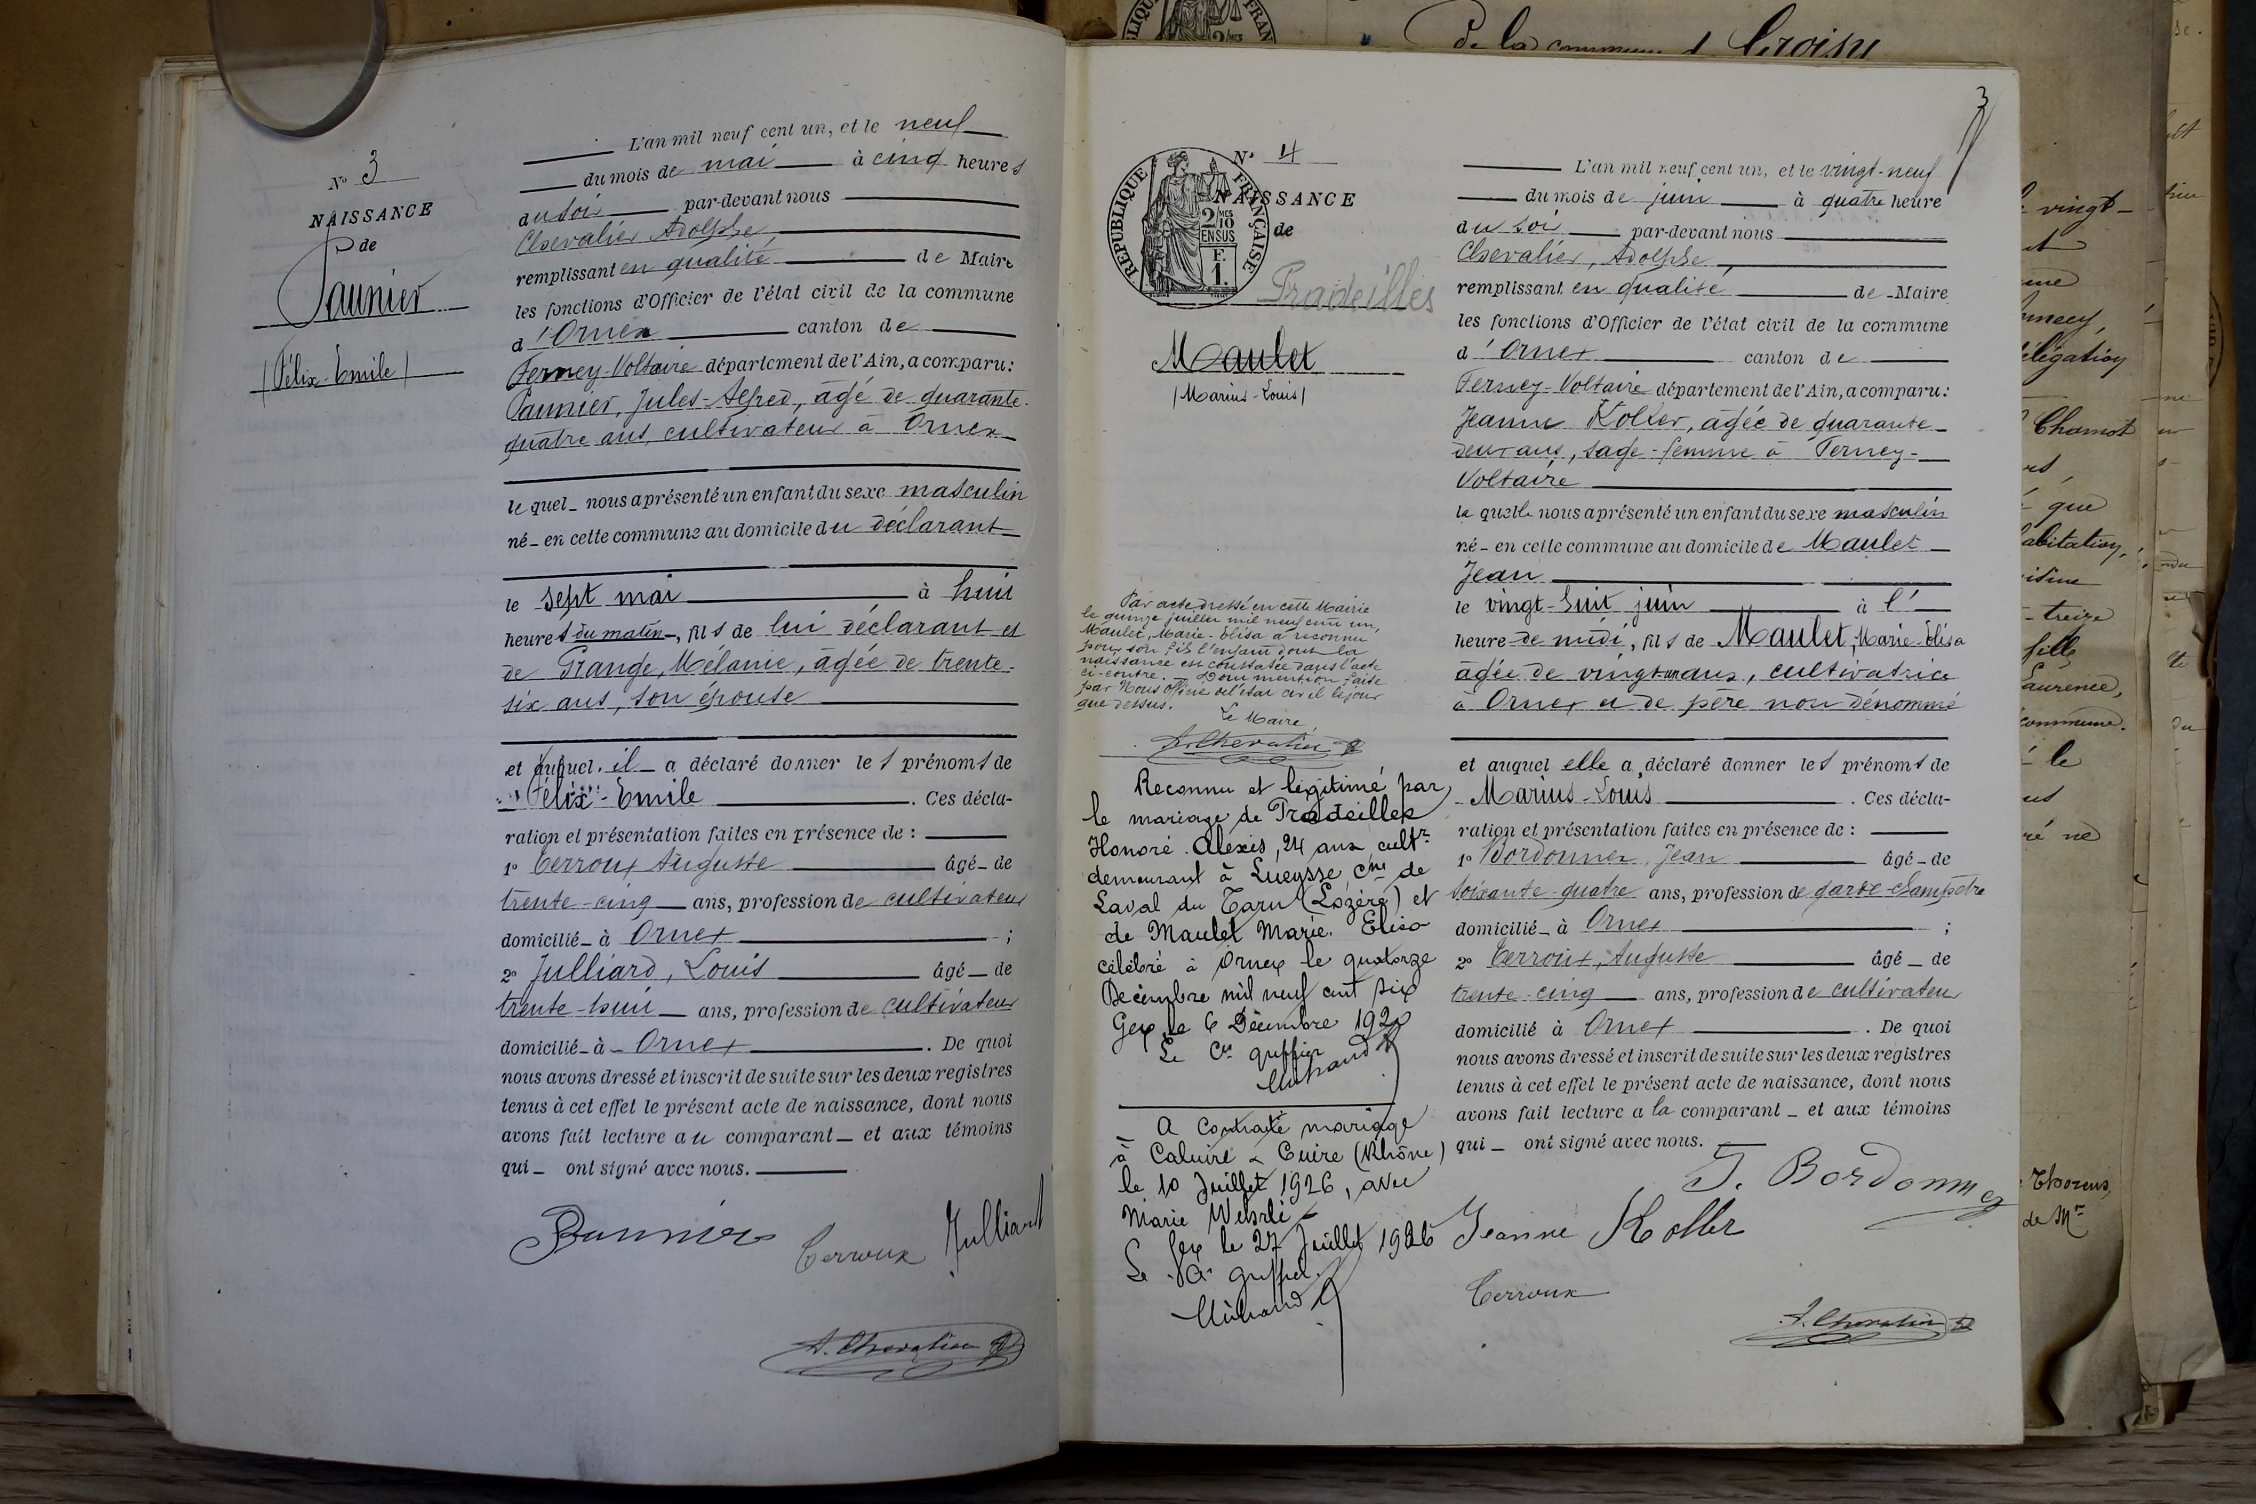 De la commune d Croisy
N° 3
NAISSANCE
de
Paunier
(Félix-Emile)
L'an mil neuf cent un, et le neuf
du mois de mai à cinq heures
du soir par-devant nous
Chevalier Adolphe
remplissant en qualité de Maire
les fonctions d'Officier de l'état civil de la commune
d'Ornex canton de
Ferney-Voltaire département de l'Ain, a comparu:
Paunier, Jules-Alfred, âgé de quarante-
quatre ans, cultivateur à Ornex
lequel nous a présenté un enfant du sexe masculin
né en cette commune au domicile du déclarant
le sept mai à huit
heures du matin, fils de lui déclarant et
de Grange, Mélanie, âgée de trente-
six ans, son épouse
et auquel il a déclaré donner les prénoms de
Félix-Emile. Ces décla-
ration et présentation faites en présence de :
1° Terroux Auguste âgé de
trente-cinq ans, profession de cultivateur
domicilié à Ornex ;
2° Julliard, Louis âgé de
trente-huit ans, profession de cultivateur
domicilié à Ornex. De quoi
nous avons dressé et inscrit de suite sur les deux registres
tenus à cet effet le présent acte de naissance, dont nous
avons fait lecture au comparant et aux témoins
qui ont signé avec nous.
Paunier Terroux Julliard
A. Chevalier
3
RÉPUBLIQUE FRANÇAISE
2/10 MES
EN SUS
F.
1.
N° 4
NAISSANCE
de
Pradeilles
Maulet
(Marius-Louis)
Par acte dressé en cette Mairie
le quinze juillet mil neuf cent un,
Maulet, Marie-Elisa a reconnu
pour son fils l'enfant dont la
naissance est constatée dans l'acte
ci-contre. Dont mention faite
par Nous officier de l'état civil le jour
que dessus.
Le Maire,
A. Chevalier
Reconnu et légitimé par
le mariage de Pradeilles
Honoré Alexis, 24 ans cultr
demeurant à Lueysse, Cne de
Laval du Tarn (Lozère) et
de Maulet Marie Elisa
célébré à Ornex le quatorze
Décembre mil neuf cent six
Gex, le 6 Décembre 1920
Le Cis greffier
A contracté mariage
à Caluire & Cuire (Rhône)
le 10 Juillet 1926, avec
Marie Wehrli
Gex le 27 Juillet 1926
Le greffier
L'an mil neuf cent un, et le vingt-neuf
du mois de juin à quatre heure
du soir par-devant nous
Chevalier, Adolphe
remplissant en qualité de Maire
les fonctions d'Officier de l'état civil de la commune
d'Ornex canton de
Ferney-Voltaire département de l'Ain, a comparu:
Jeanne Koller, âgée de quarante-
deux ans, sage-femme à Ferney-
Voltaire
laquelle nous a présenté un enfant du sexe masculin
né en cette commune au domicile de Maulet
Jean
le vingt-huit juin à l'
heure de midi, fils de Maulet, Marie-Elisa
âgée de vingt-un ans, cultivatrice
à Ornex et de père non dénommé
et auquel elle a déclaré donner les prénoms de
Marius-Louis. Ces décla-
ration et présentation faites en présence de :
1° Bordonnex, Jean âgé de
soixante-quatre ans, profession de garde-champêtre
domicilié à Ornex ;
2° Terroux, Auguste âgé de
trente-cinq ans, profession de cultivateur
domicilié à Ornex. De quoi
nous avons dressé et inscrit de suite sur les deux registres
tenus à cet effet le présent acte de naissance, dont nous
avons fait lecture a la comparant et aux témoins
qui ont signé avec nous.
J. Bordonnex
Jeanne Koller
Terroux
A. Chevalier
vingt-
Chamot
que
habitation,
treize
fille
Laurence,
commune.
le
ré ne
Thorens,
de Mr